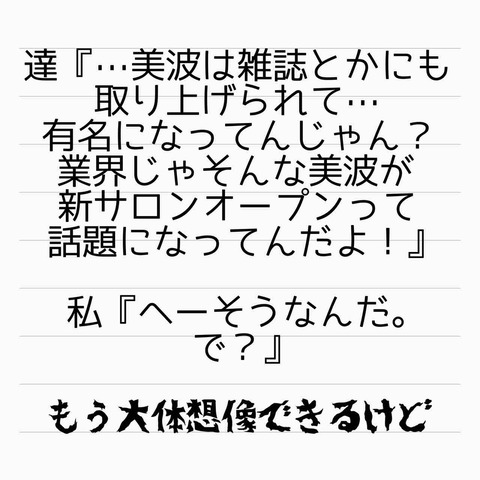 達『…美波は雑誌とかにも
取り上げられて…
有名になってんじゃん？
業界じゃそんな美波が
新サロンオープンって
話題になってんだよ！』
私『へーそうなんだ。
で？』
もう大体想像できるけど